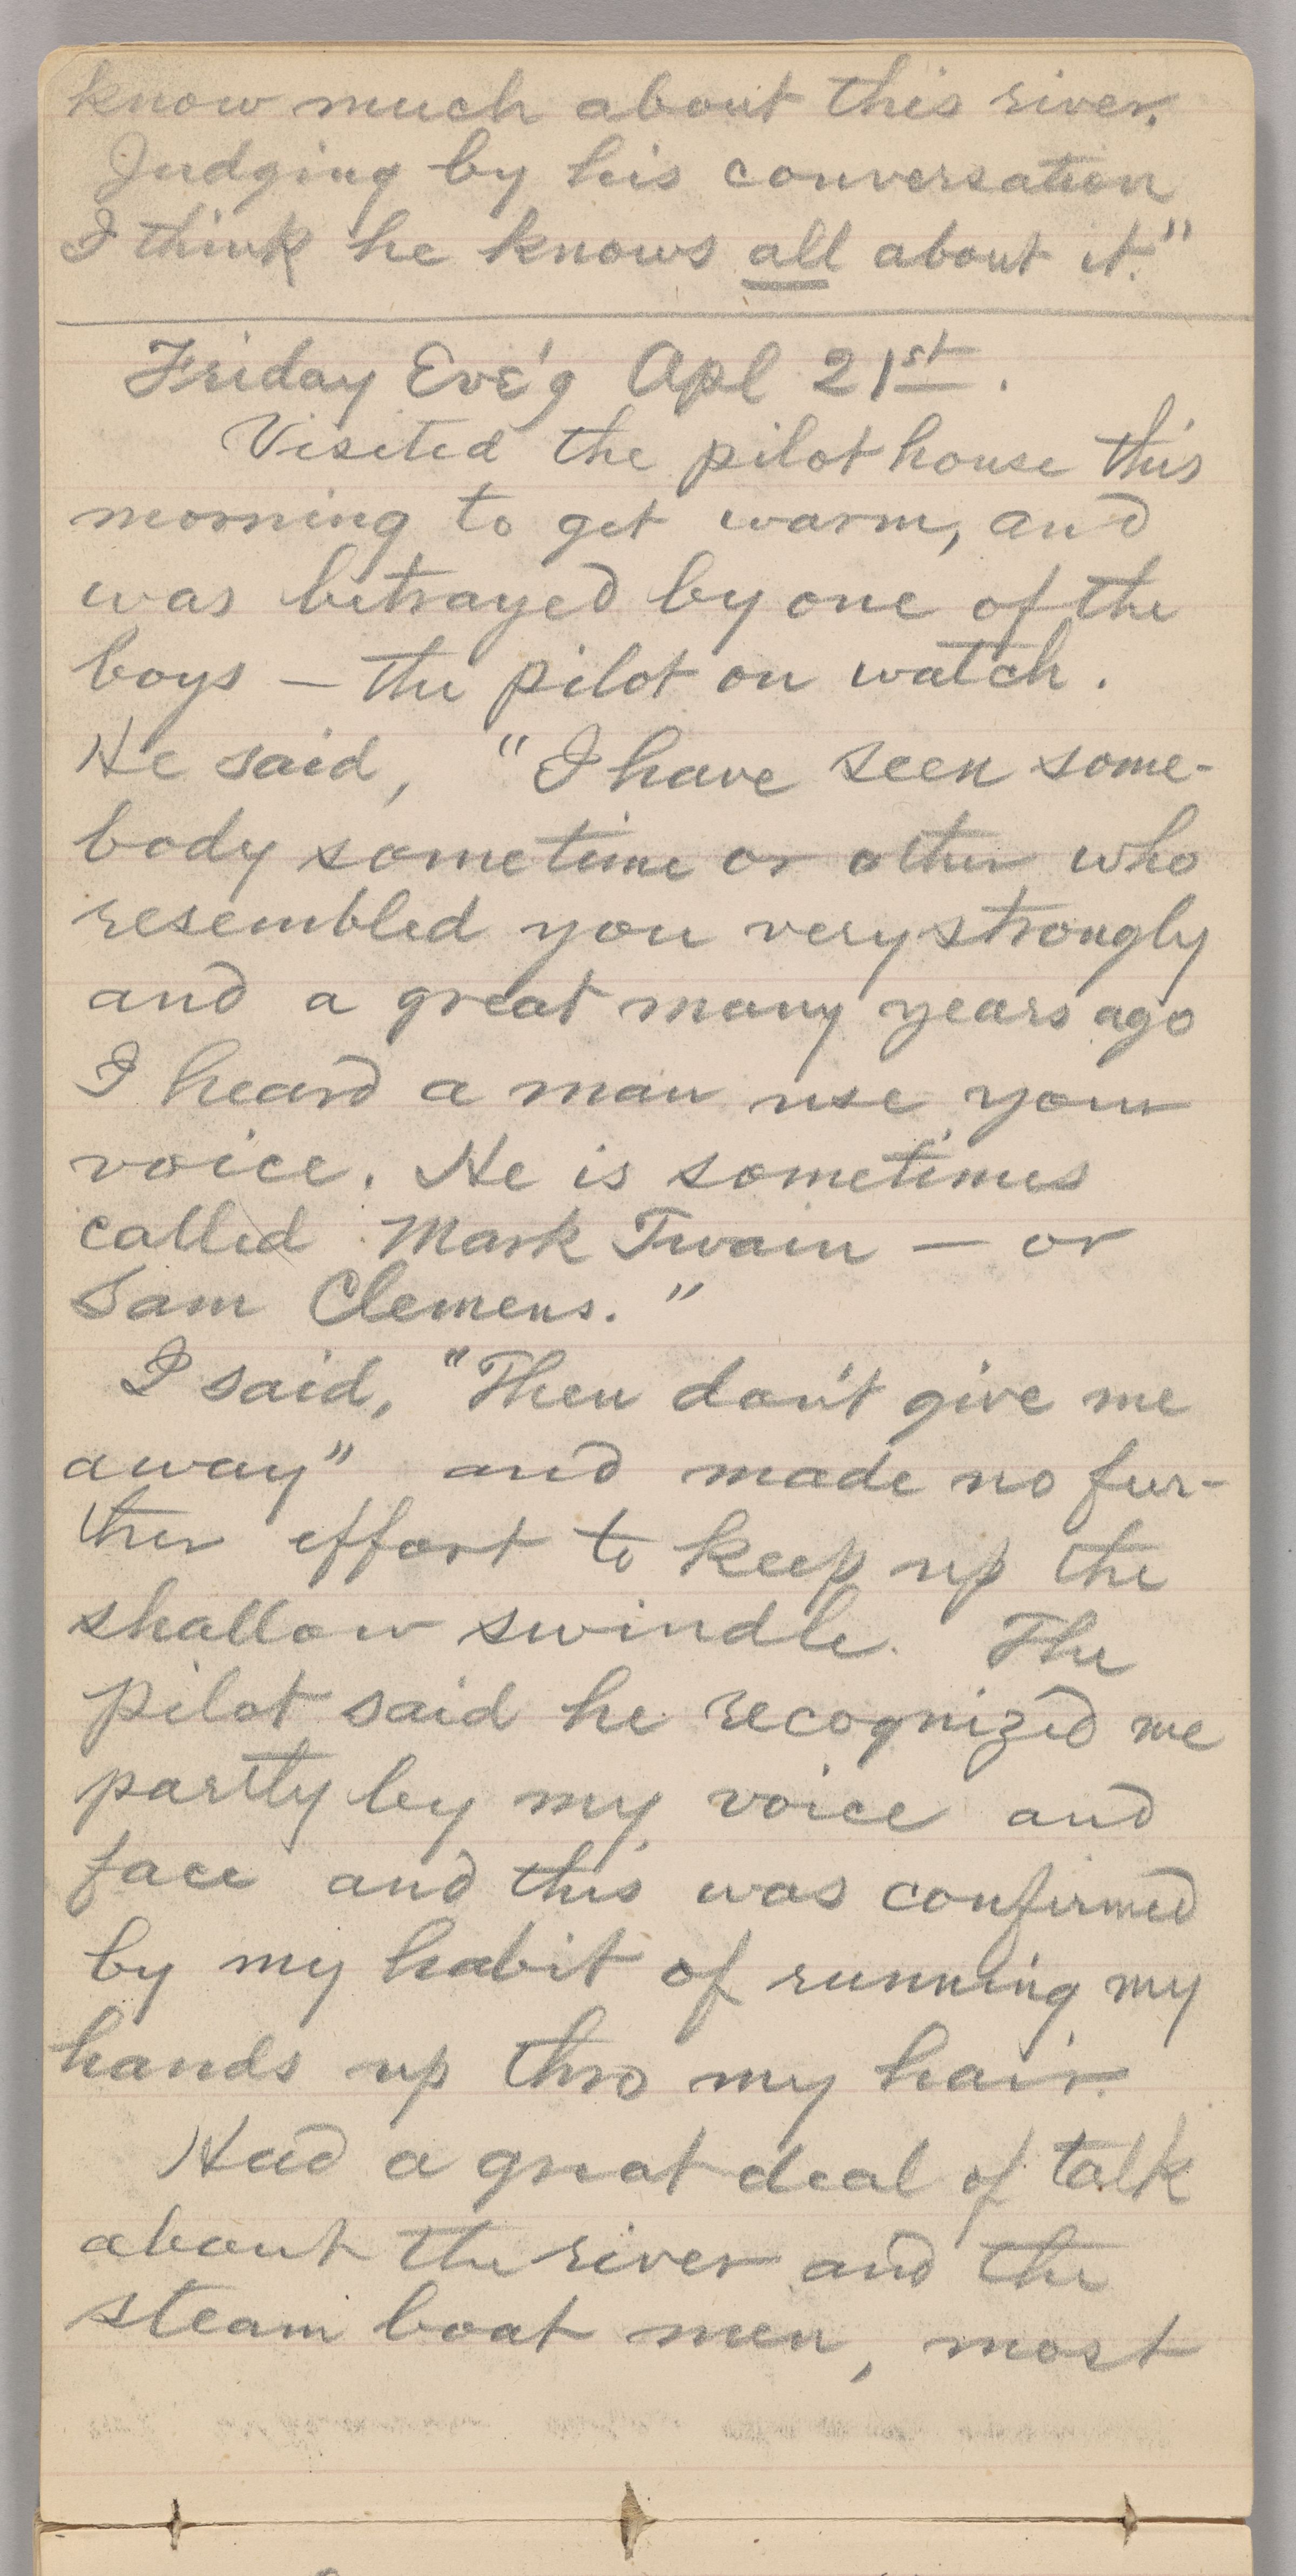 know much about this river.
Judging by his conversation
I think he knows all about it."
Friday Eve'g Apl 21st.
Visited the pilot house this
morning to get warm, and
was betrayed by one of the
boys — the pilot on watch.
He said, "I have seen some-
body sometime or other who
resembled you very strongly
and a great many years ago
I heard a man use your
voice. He is sometimes
called Mark Twain — or
Sam Clemens."
I said, "Then don't give me
away" and made no fur-
ther effort to keep up the
shallow swindle. The
pilot said he recognized me
partly by my voice and
face and this was confirmed
by my habit of running my
hands up thro my hair.
Had a great deal of talk
about the river and the
steam boat men, most